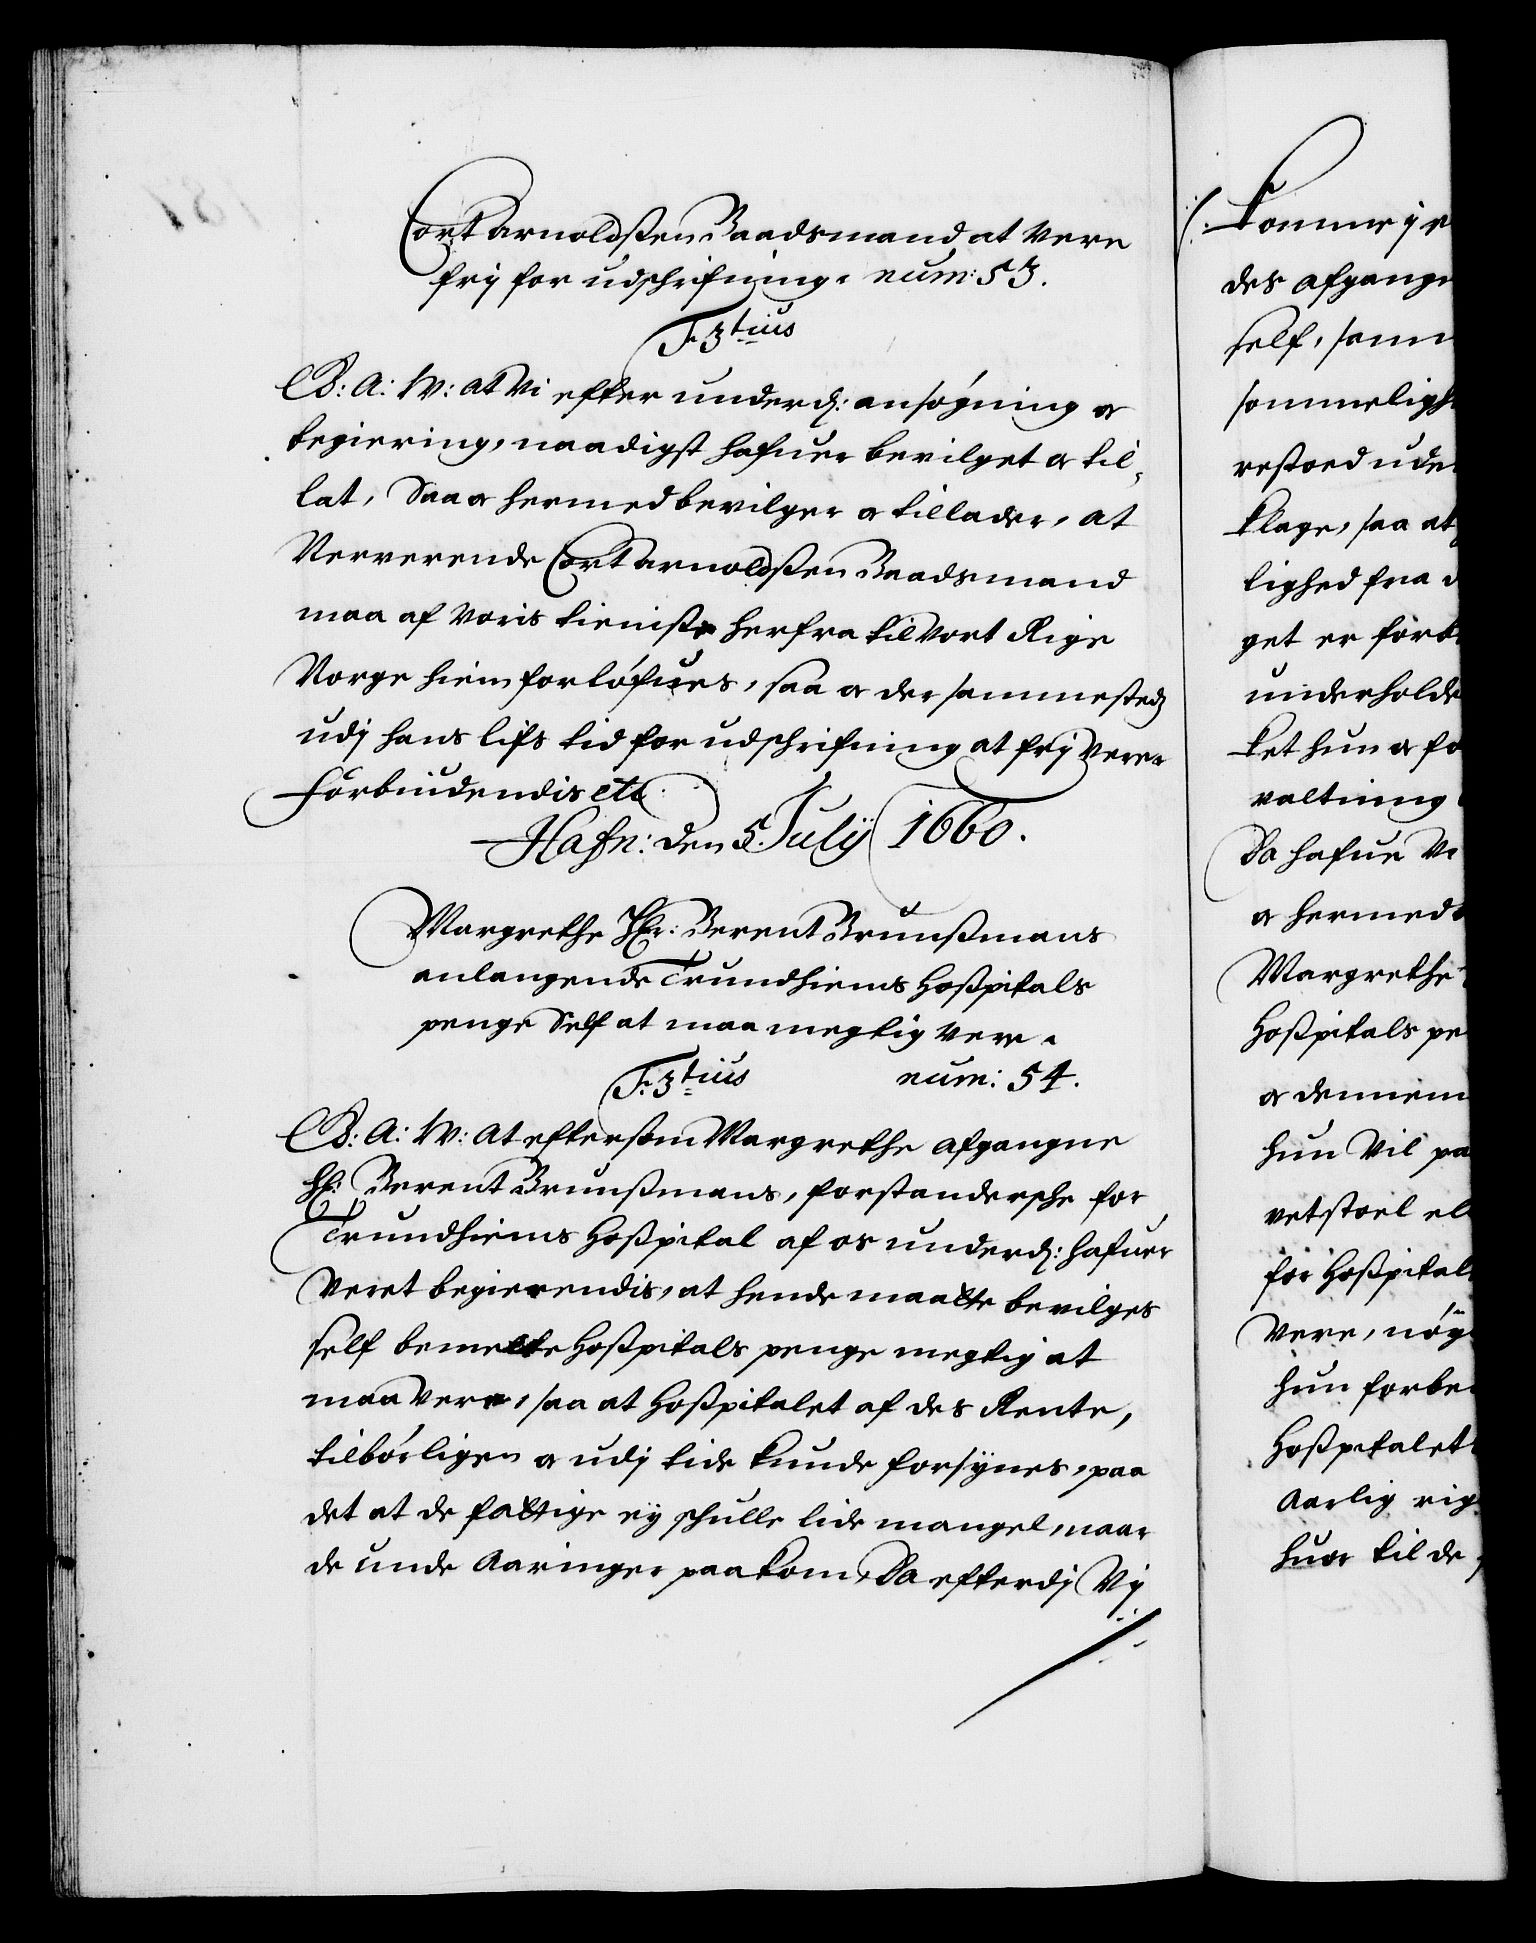 Cort Arnoldßen Baadsmand at Vere
frij for udschrifning. num: 53.
F. 3tius
G: A: W: at Vi efter underd: ansøgning oc
begiering, naadigst hafuer bevilget oc til¬
lat, Saa oc hermed bevilger oc tillader, at
Nerverende Cort Arnoldßen Baadsmand
maa af Voris tieniste herfra til Vort Rige
Norge hiem forløfues, saa oc der sammesteds
udj hans lifs tid for udschrifning at frij Vere.
Forbiudendis etc.
Hafn: den 5. Julij 1660.
Margrethe Hr: Berent Brunßmans
anlangende Trundhiems Hoßpitals
penge Self at maa megtig Vere.
F. 3tius num: 54.
G: A: W: at eftersom Margrethe afgangne
Hr: Berent Brunßmans, forstandersche for
Trundhiems Hoßpital af os underd: hafuer
Veret begierendis, at hende maatte bevilges
self bemelte Hoßpitals penge megtig at
maa Vere, saa at Hoßpitalet af des Rente,
tilbørligen oc udj tide kunde forsynes, paa
det at de fattige ey schulle lide mangel, naar
de unde Aaringer paakom, Da efterdj Vij
Kommer j
des afgange
self, som
sommeligh
restoed ude
klage, saa at
lighed fra
get er fork
underholde
ket hun oc fo
valtning
Da hafue Vi
oc hermed
Margrethe
Hoßpitals pe
oc dennem
hun Vil pa
vetstoel el
for Hoßpital
Vere, nøy
hun forbe
Hoßpitalet
Aarlig rig
huor til de